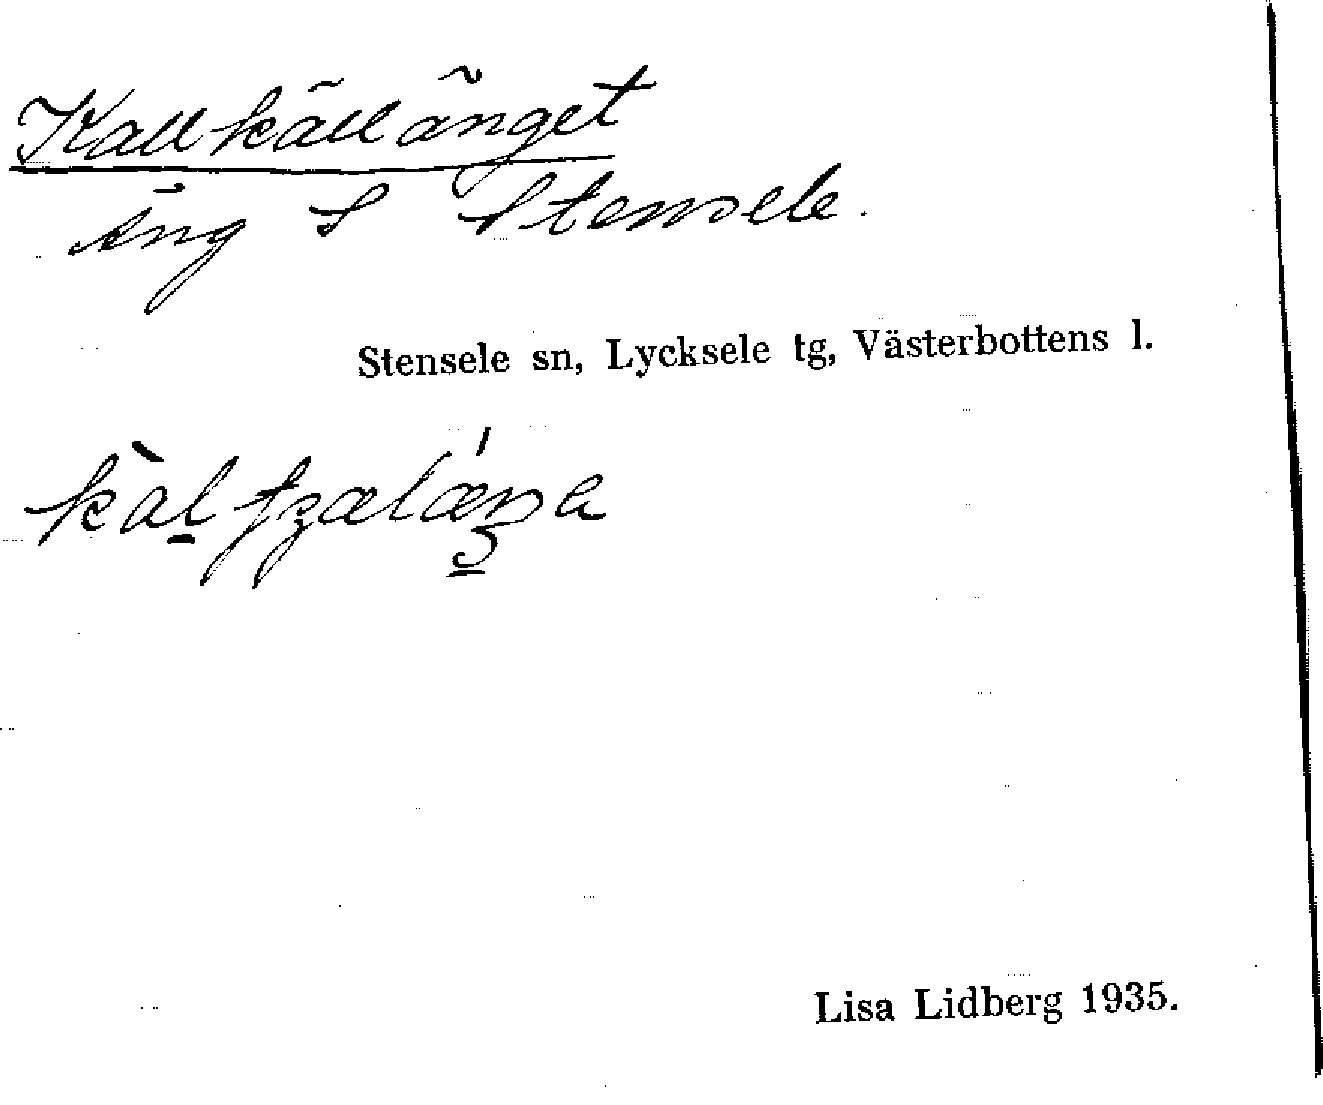 Kallkälländet
äng S Stensele.
Stensele sn, Lycksele tg, Västerbottens l.
Lisa Lidberg 1935.